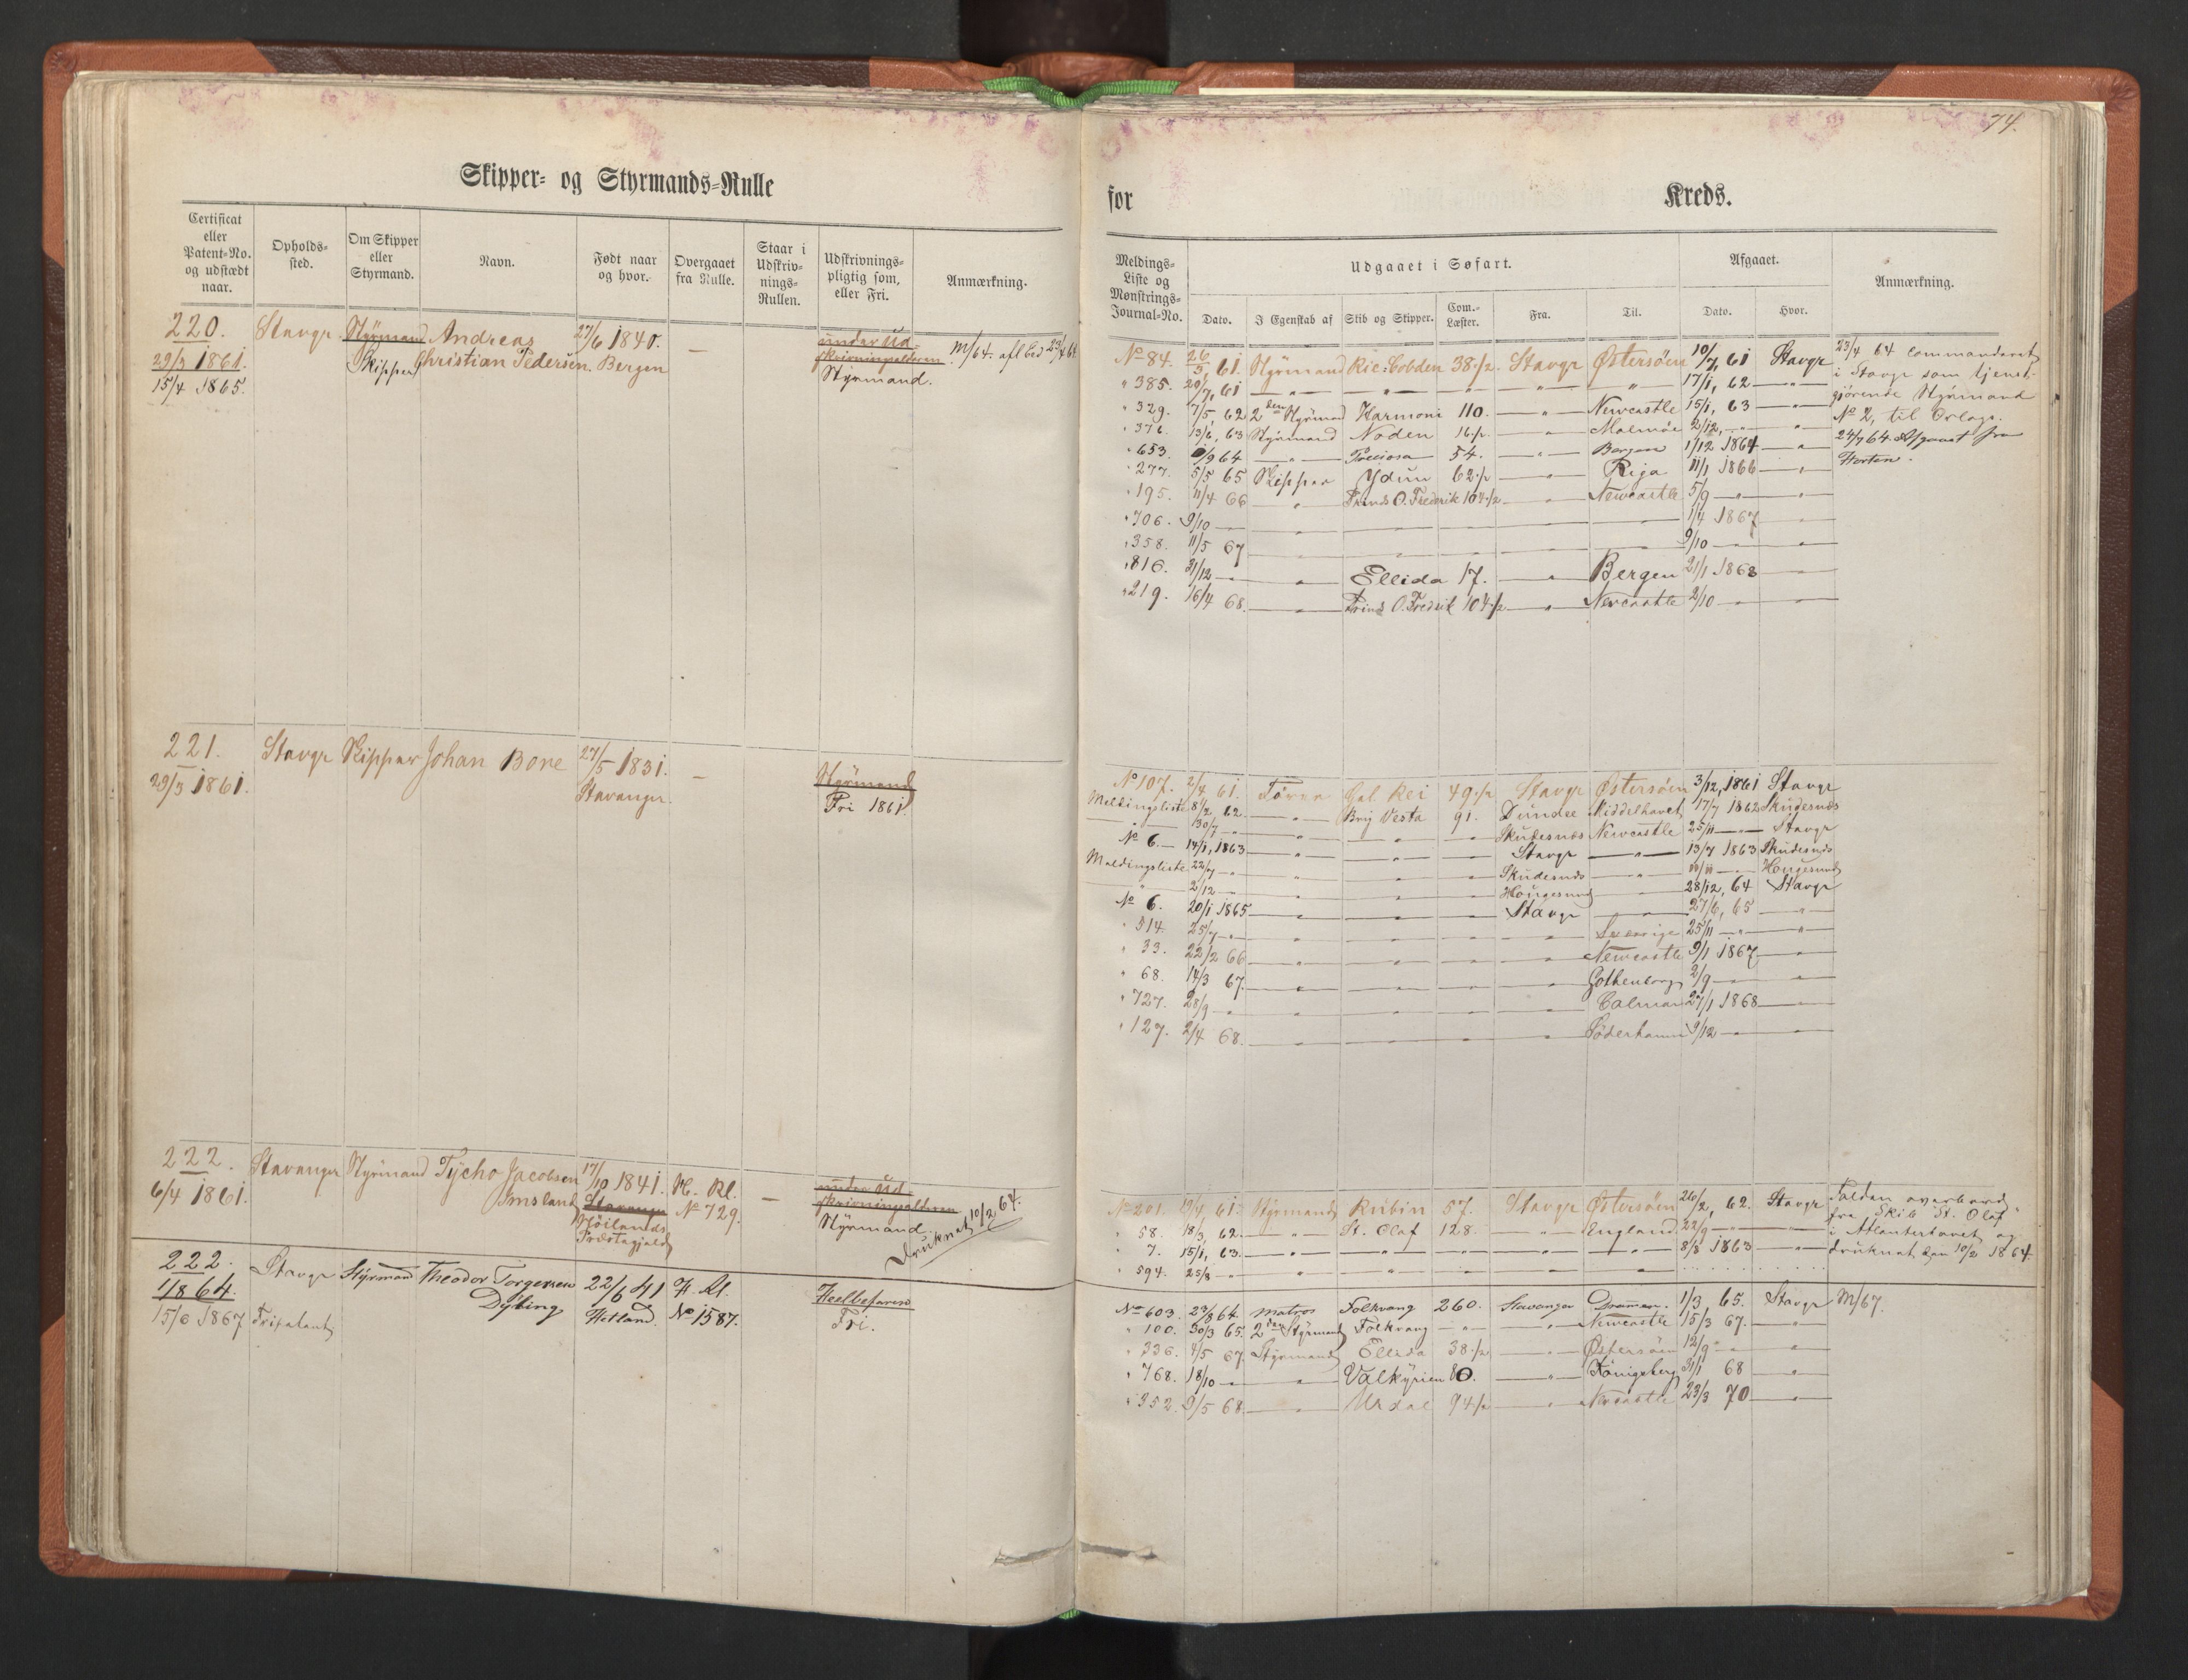 74.
Skipper- og Styrmands-Rulle
for Kreds.
Certificat eller Patent-No. og udstædt naar.
Opholds-sted.
Om Skipper eller Styrmand.
Navn.
Født naar og hvor.
Overgaaet fra Rulle.
Staar i Udskriv-nings-Rullen.
Udskrivnings-pligtig som, eller Fri.
Anmærkning.
Meldings-Liste og Mønstrings-Journal-No.
Udgaaet i Søfart.
Dato. I Egenskab af Skib og Skipper. Com.-Læster. Fra. Til.
Afgaaet.
Dato. Hvor.
Anmærkning.
220. Stavgr Styrmand Andreas 27/6 1840. — under Ud-
29/3 1861. Skipper Christian Pedersen. Bergen skrivningsalderen M/64. afl bed 23/4 64
15/4 1865. Styrmand.
No 84. 26/3, 61. Styrmand Ric: Cobden 38 1/2. Stavgr Østersøen 10/7, 61 Stavgr
" 385. 20/7, 61 — " — — " — " — " — " 17/1, 62 — " —
" 329. 7/5, 62 2den Styrmand Harmoni 110. — " — Newcastle 15/1, 63 — " —
" 376. 13/6, 63 Styrmand Noden 16 1/2. — " — Malmøe 2/12, — " — "
" 653. 9/9 64 — " — Preciosa 54. — " — Bergen 1/12 1864 — "
" 277. 5/5 65 Skipper Ydun 62 1/2 — " — Riga 11/1 1866 — " —
" 195. 11/4 66 — " — Prinds O. Frederik 104 1/2 — " — Newcastle 5/9 — " — "
" 706. 9/10 — — " — 1/4 1867 — " —
" 358. 11/5 67 — " — " — " — " — 9/10 — " — "
" 816. 31/12 — " — " Ellida 17. — " Bergen 21/1 1868 — " —
" 219. 16/4 68. — " — Prinds O. Fredrik 104 1/2 — " — Newcastle 2/10 — " — "
23/4 64 commanderet
i Stavgr som tjenst-
gjørende Styrmand
No 2, til Orlogs.
24/7 64. Afgaaet fra
Horten.
221. Stavgr Skipper Johan Bore 27/5 1831. — Styrmand
29/3 1861. Stavanger. Fri 1861
No 107. 2/4 61. Fører Gal. Rei 49 1/2 Stavgr Østersøen 3/12, 1861 Stavgr
Meldingsliste 8/2, 62. — " — Brig Vesta 91. Dundee Middelhavet 17/7 1862 Skudesnæs
— " — 30/7 — " — " — " — " Skudesnæs Newcastle 25/11 — " — Stavgr
No 6. — 14/1, 1863 — " — " — " Stavgr — " — 13/7 1863 Skudesnæs
Meldingsliste 22/7 — " — " — " — " Skudesnæs — " — 11/11 — " — Hougesund
" 2/12 — " — " — " — " Hougesund — " — 28/12, 64 Stavgr
No 6. 20/1 1865 — " — " — " Stavgr — " — 27/6, 65 — " —
" 514. 25/7 — " — " — " — " — " Sverrige 25/11 — " — "
" 33. 22/2 66 — " — " — " — " Newcastle 9/1 1867 — " —
" 68. 14/3 67. — " — " — " — " Gothenborg 2/9 — " — "
" 727. 28/9 — " — " — " — " — " Calmar 27/1 1868 — " —
" 127. 2/4 68. — " — " — " — " Søderhamn 9/12 — " — "
222. Stavanger Styrmand Tycho Jacobsen 17/10 1841. H. Rl. — under Ud-
6/4 1861. Imsland Stavanger No 729. skrivningsalderen
Høilands Styrmand.
Præstegjeld Druknet 10/2 64.
No 201. 19/4 61. Styrmand Rubin 57. Stavgr Østersøen 26/2, 62. Stavgr
" 58. 18/3, 62. — " — St. Olaf 128. — " — England 22/9 — " — "
" 7. 15/1, 63. — " — " — " — " — " 8/8 1863 — " —
" 594. 25/8 — " — " — " — " — "
Falden overbord
fra Skib "St. Olaf"
i Atlanterhavet og
druknet den 10/2 1864
222. Stavgr Styrmand Theodor Torgersen 22/6 41 H. Rl. Heelbefaren
1/8 64. Dybing Hetland. No 1587. Fri.
15/6 1867 Fripatent
No 603. 23/8 64. Matros Folkvang 260. Stavanger Drammen. 1/3, 65. Stavgr M/67.
" 100. 30/3 65. 2den Styrmand Folkvang — " — — " — Newcastle 15/3 67. — " —
" 336. 4/5 67. Styrmand Ellida 38 1/2 — " — Østersøen 12/9 — " — "
" 768. 18/10 — " — " — Valkyrien 80. — " — Königsberg 31/1 68 — "
" 352. 9/5 68. — " — Urdal 94 1/2 — " — Newcastle 23/3 70 — "